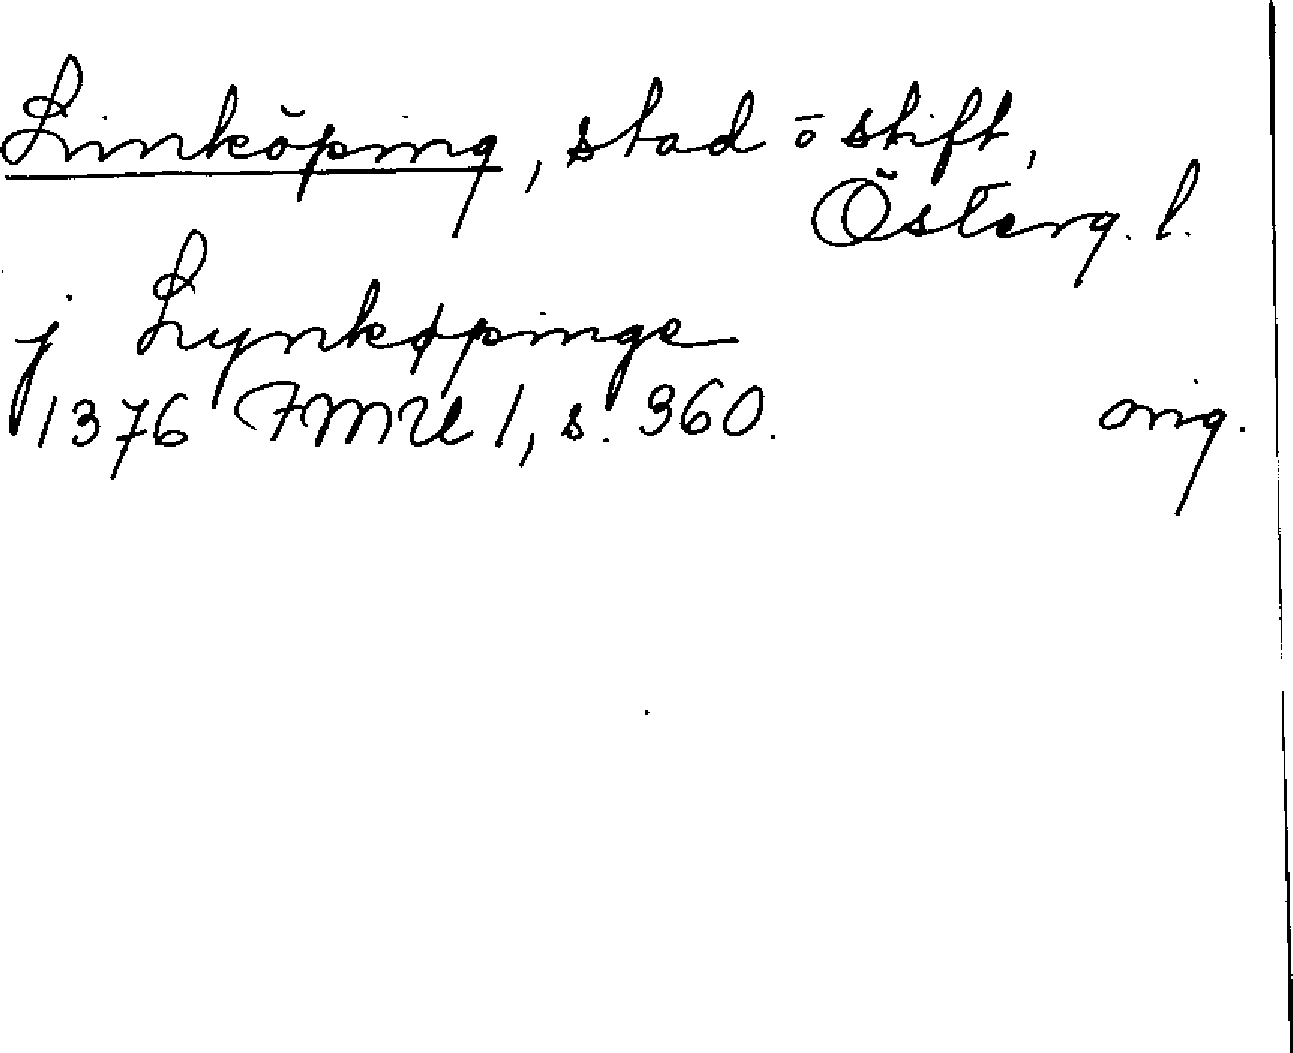 Linköping, stad ō stift,
Österg. l.
j Lynkøpinge
1376 FMU 1, s. 360. orig.